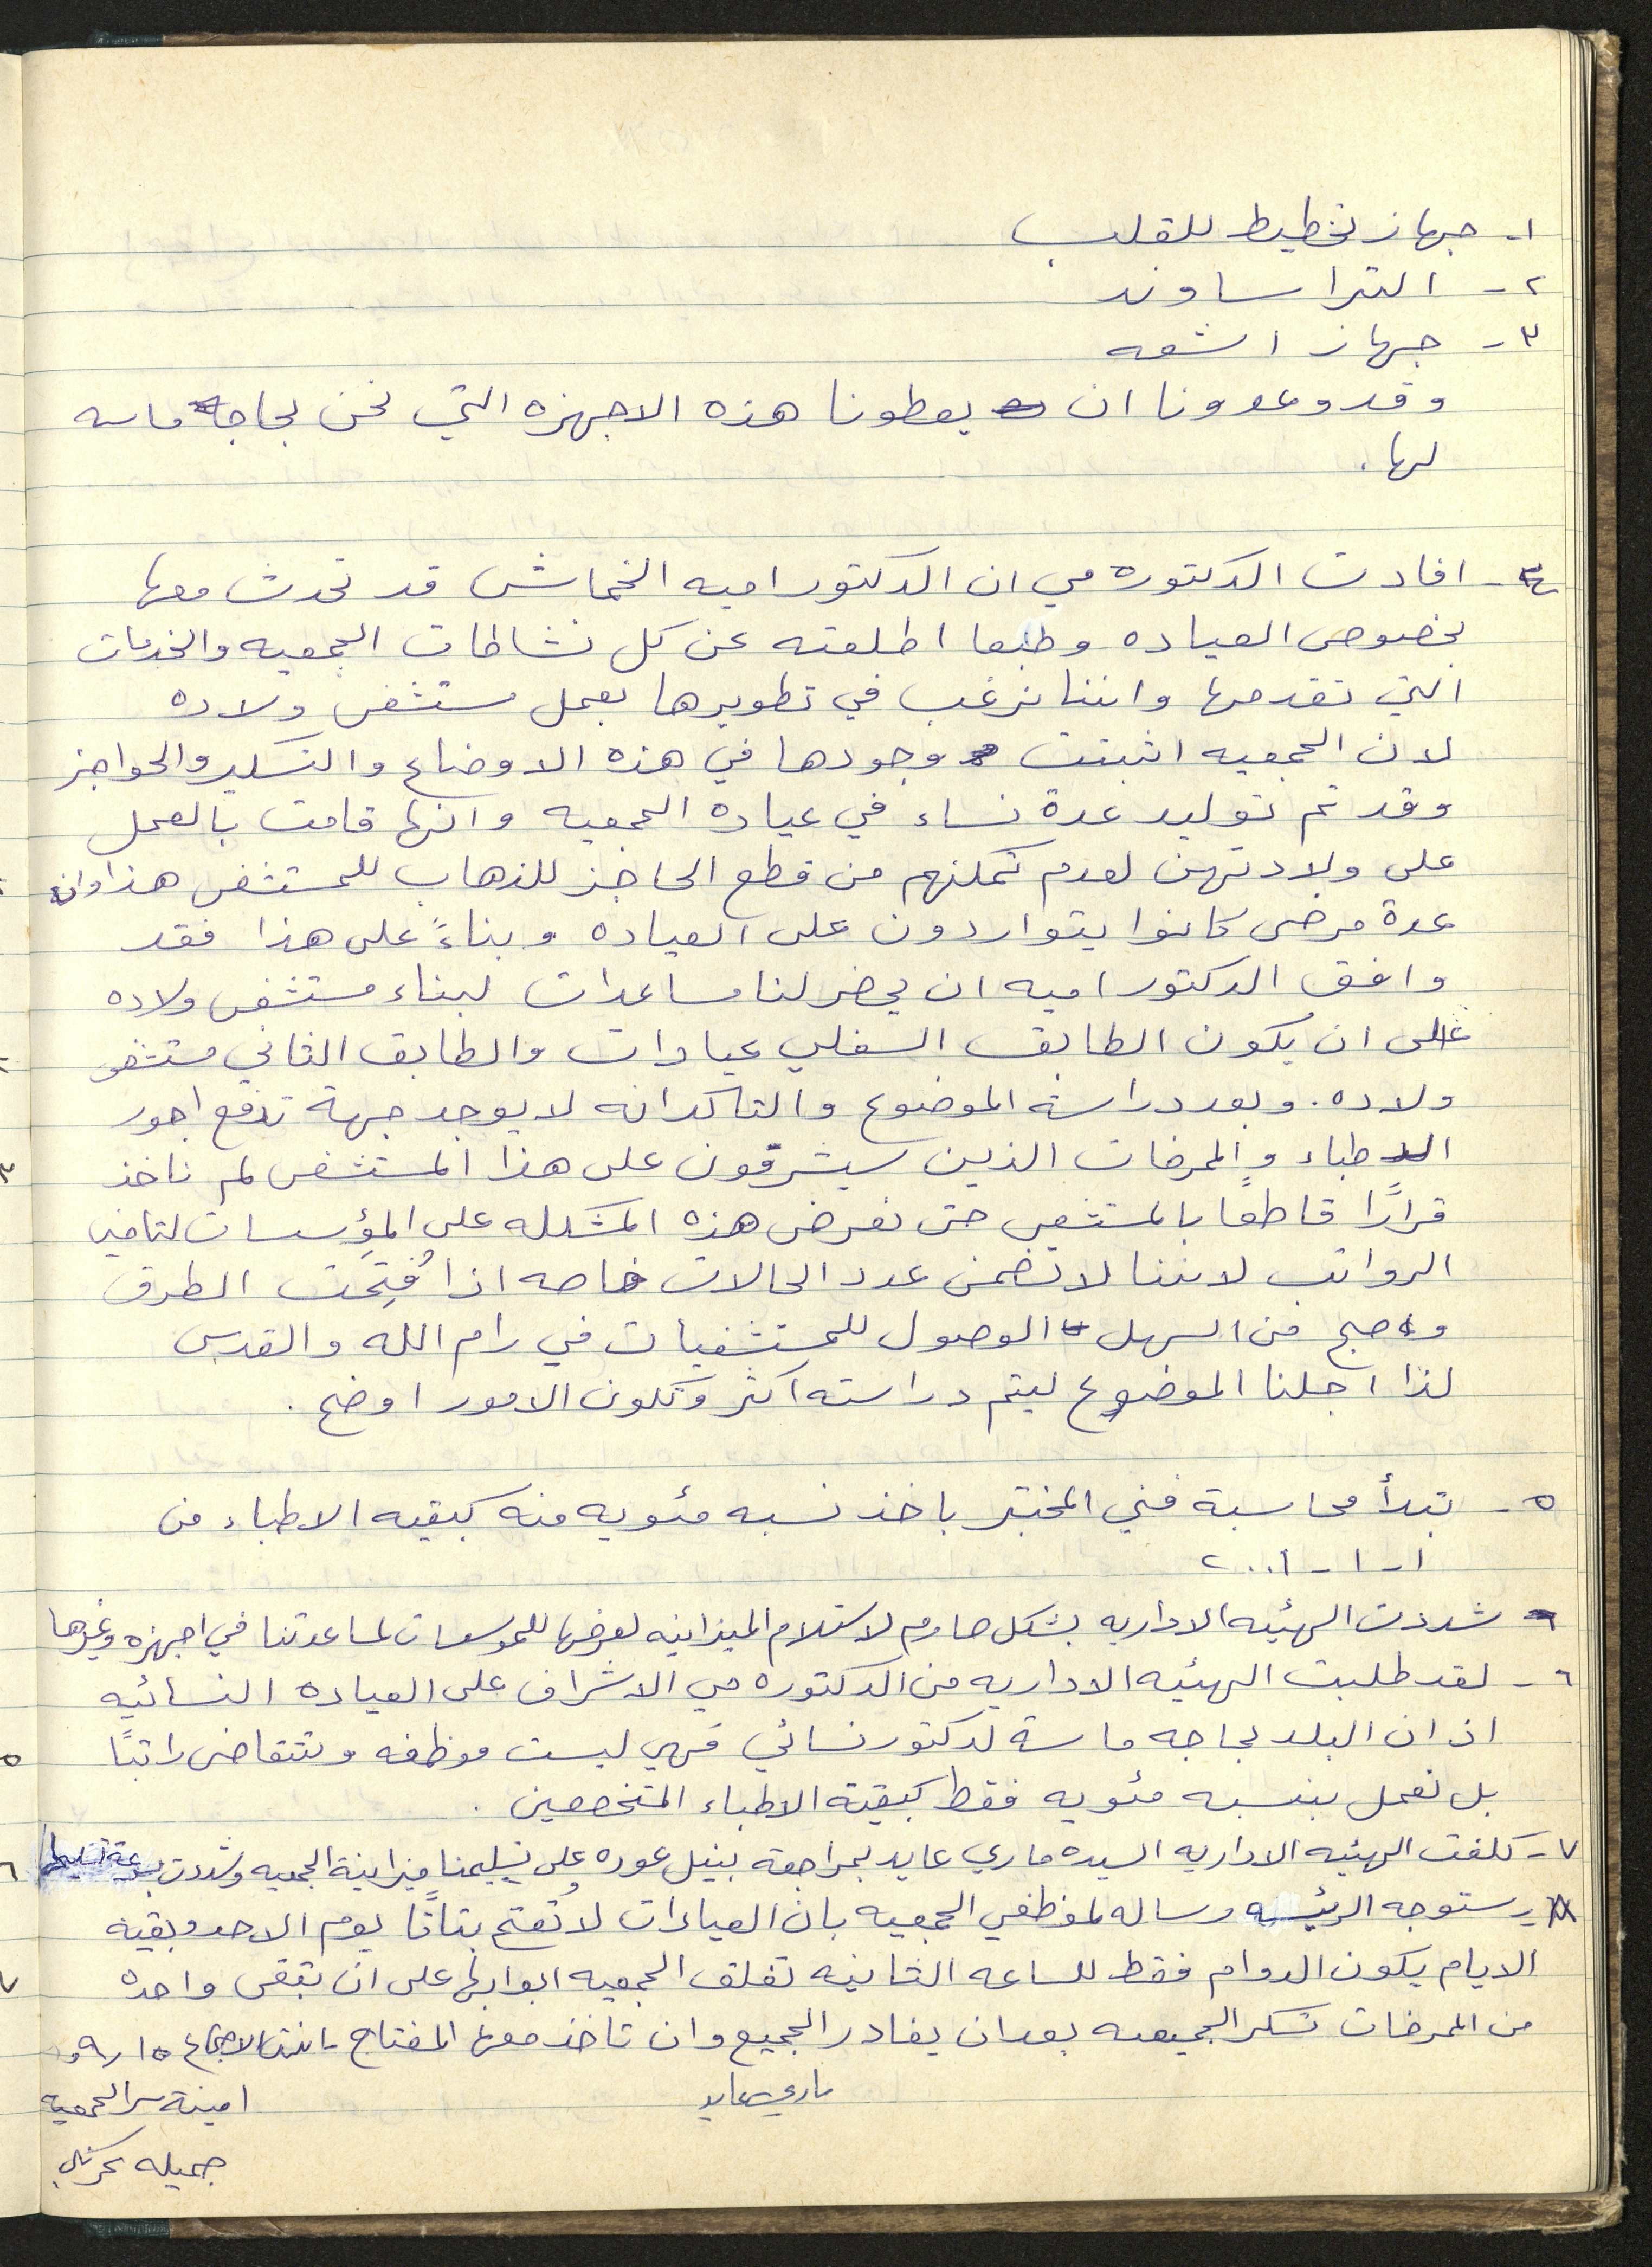 ١- جهاز تخطيط للقلب
٢- التراساوند
٣- جهاز اشعه
وقد وعدونا ان يعطونا هذه الاجهزه التي نحن بحاجه ماسه
لها.
٤- افادت الدكتوره مي ان الدكتور اميه الخماش قد تحدث معها
بخصوص العياده وطبعا اطلعته عن كل نشاطات الجمعيه والخدمات
التي تقدمها واننا نرغب في تطويرها بعمل مستشفى ولاده
لان الجمعيه اثبتت وجودها في هذه الاوضاع والتسكير والحواجز
وقد تم توليد عدة نساء في عيادة الجمعيه وانها قامت بالعمل
على ولادتهن لعدم تمكنهم من قطع الحاجز للذهاب للمستشفى هذا وان
عدة مرضى كانوا يتواردون على العياده وبناءً على هذا فقد
وافق الدكتور اميه ان يحضر لنا مساعدات لبناء مستشفى ولاده
على ان يكون الطابق السفلي عيادات والطابق الثاني مستشفى
ولاده. وبعد دراسة الموضوع والتاكد انه لا يوجد جهة تدفع اجور
الاطباء والممرضات الذين سيشرفون على هذا المستشفى لم ناخذ
قرارًا قاطعًا بالمستشفى حتى نعرض هذه المشكله على المؤسسات لتامين
الرواتب لاننا لا نضمن عدد الحالات خاصه اذا فُتِحت الطرق
واصبح من السهل الوصول للمستشفيات في رام الله والقدس
لذا اجلنا الموضوع ليتم دراسته اكثر وتكون الامور اوضح.
٥- تبدأ محاسبة فني المختبر باخذ نسبه مئويه منه كبقيه الاطباء من
١-١-٢٠٠١
شددت الهيئه الاداريه بشكل صارم لاستلام الميزانيه لعرضها للموسسات لمساعدتنا في اجهزه وغيرها
٦- لقد طلبت الهيئه الاداريه من الدكتوره مي الاشراف على العياده النسائيه
اذ ان البلد بحاجه ماسة لدكتور نسائي فهي ليست موظفه وتتقاضى راتبًا
بل تعمل بنسبه مئويه فقط كبقية الاطباء المتخصصين.
٧- كلفت الهيئه الاداريه السيده ماري عايد بمراجعة نبيل عوده على تسليمنا ميزانية الجمعيه وشددت بسرعة تسليمها
٨- ستوجه الرئيسه رساله لموظفي الجمعيه بان العيادات لا تُفتح بتاتًا يوم الاحد وبقيه
الايام يكون الدوام فقط للساعه الثانيه تغلق الجمعيه ابوابها على ان تبقى واحده
من الممرضات تسكر الجمعيه بعد ان يغادر الجميع وان تاخذ معها المفتاح - انتهى الاجتماع
ماري عايد
امينة سر الجمعيه
جميله